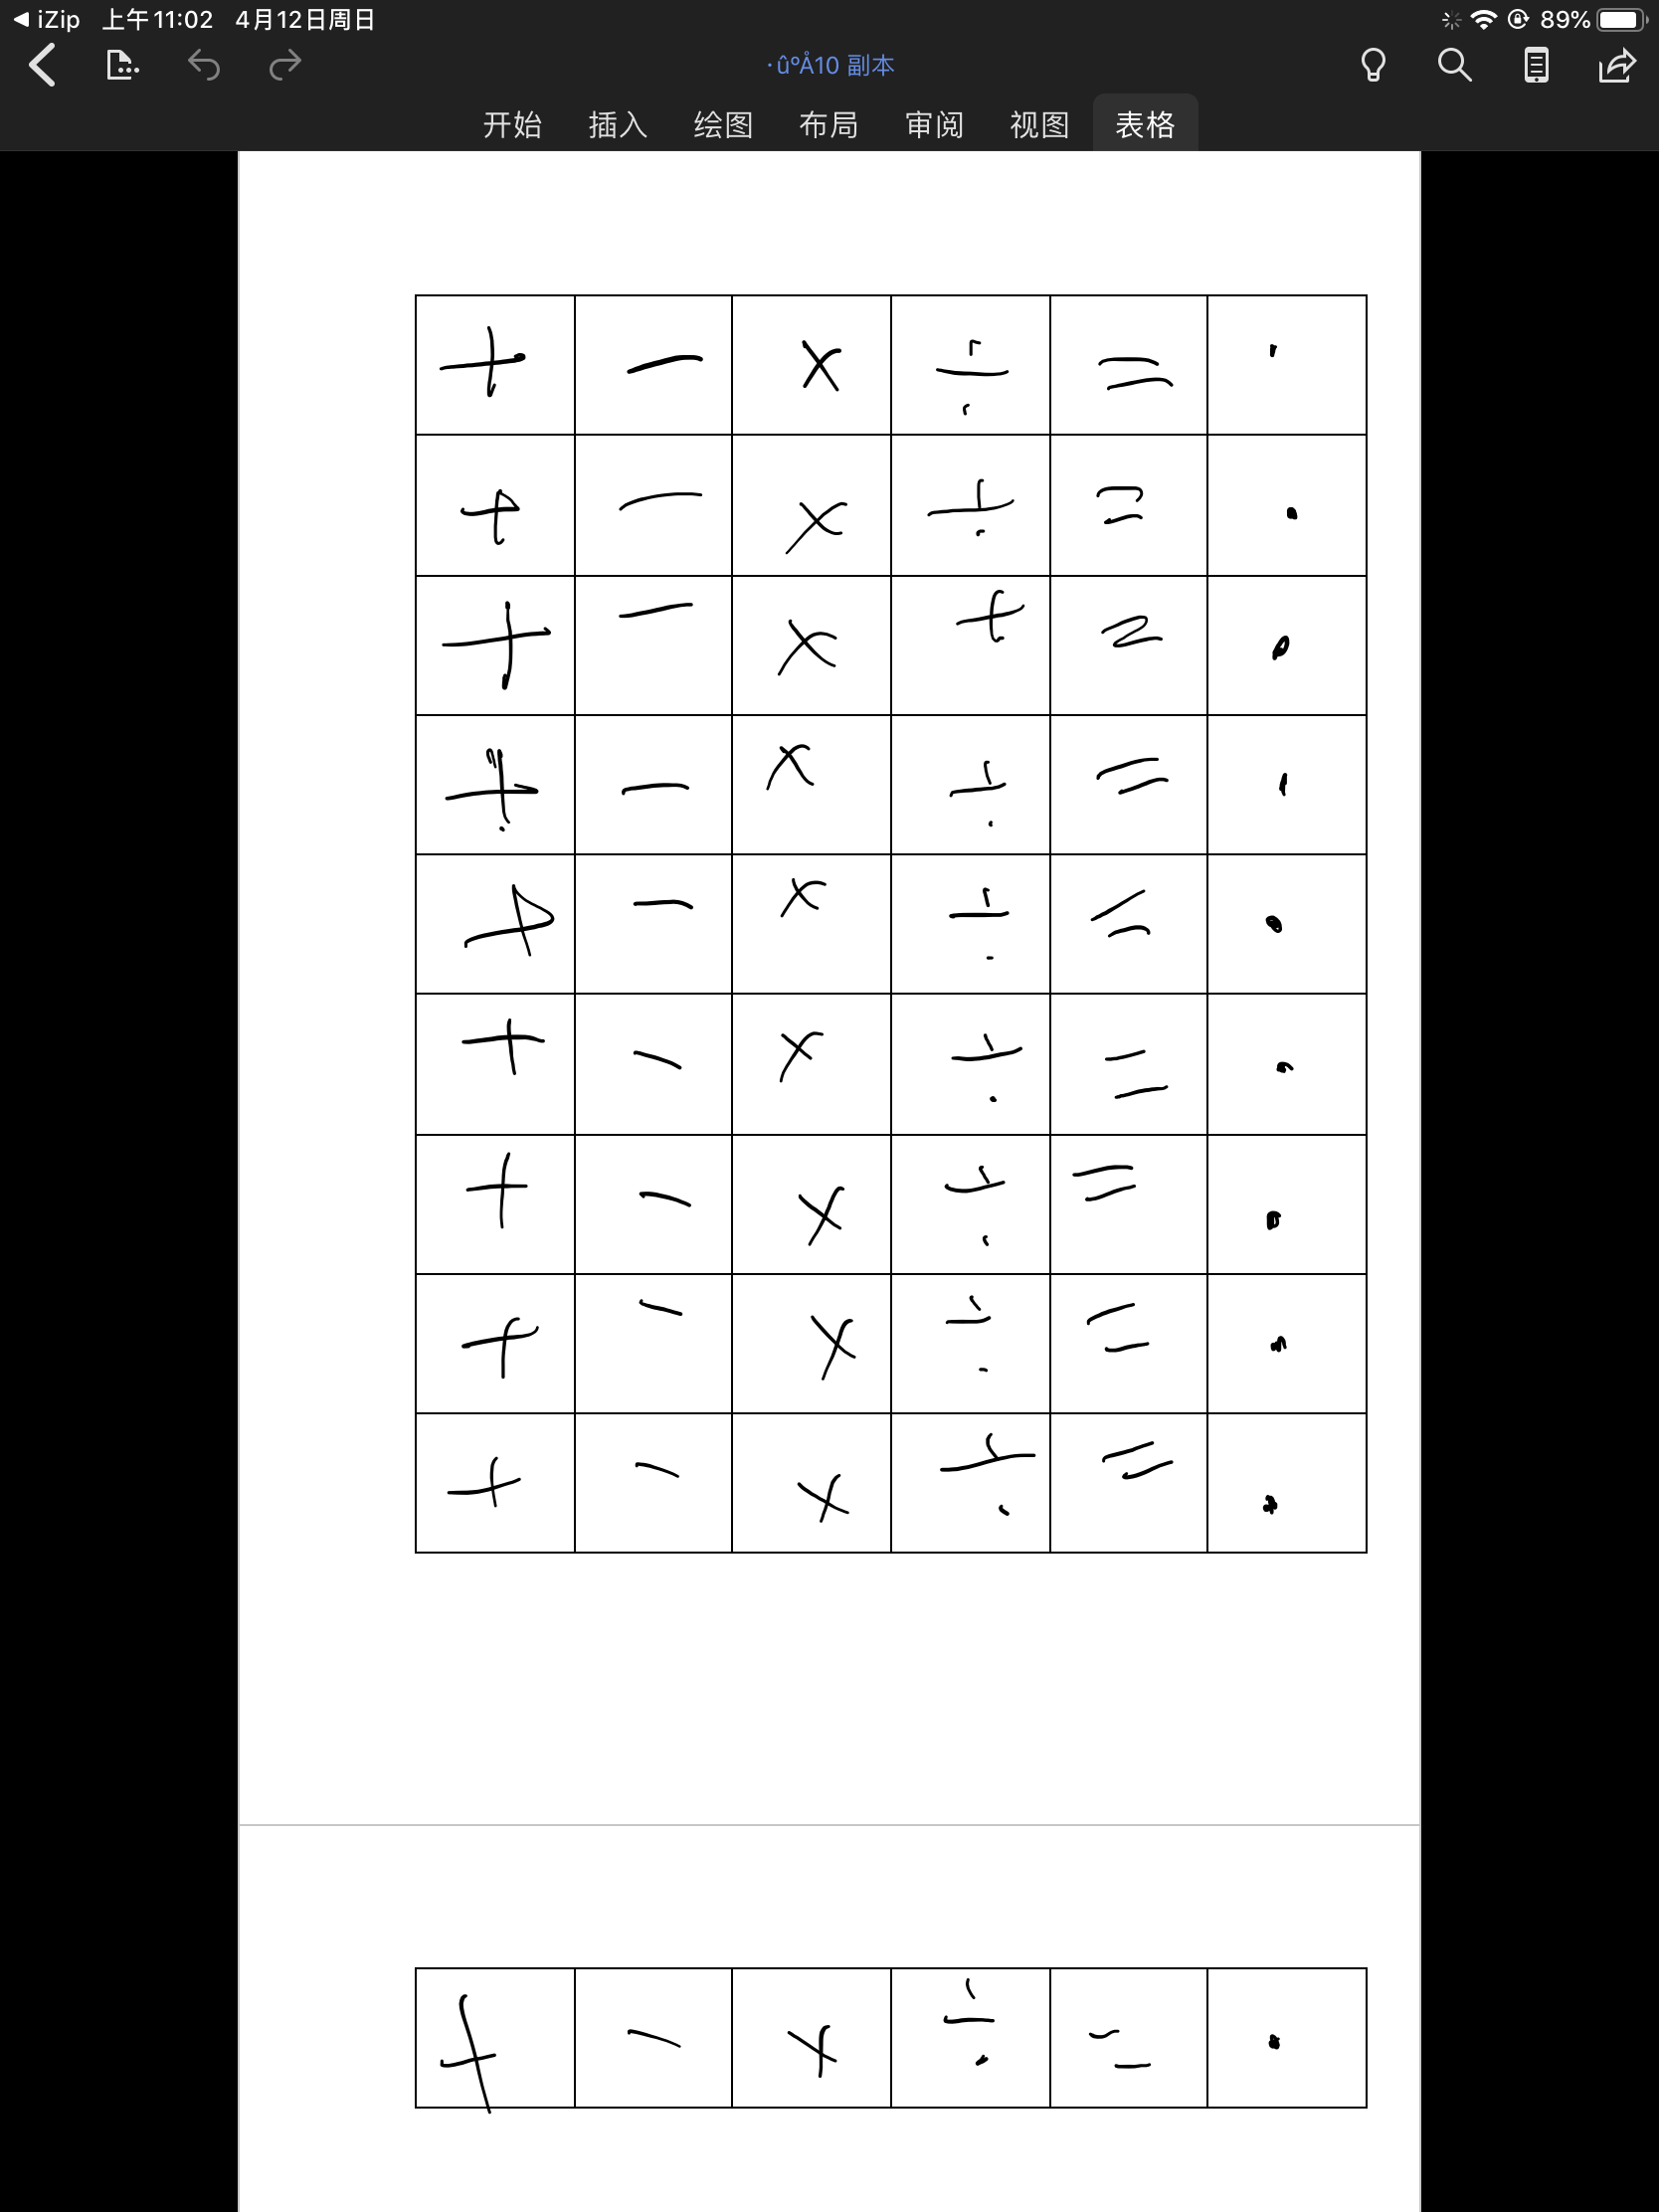 iZip 上午11:02 4月12日周日 89%
·û°Å10 副本
开始 插入 绘图 布局 审阅 视图 表格
+ − × ÷ = ·
+ − × ÷ = ·
+ − × + = ·
+ − × ÷ = ·
+ − × ÷ = ·
+ − × ÷ = ·
+ − × ÷ = ·
+ − × ÷ = ·
+ − × ÷ = ·
+ − × ÷ = ·